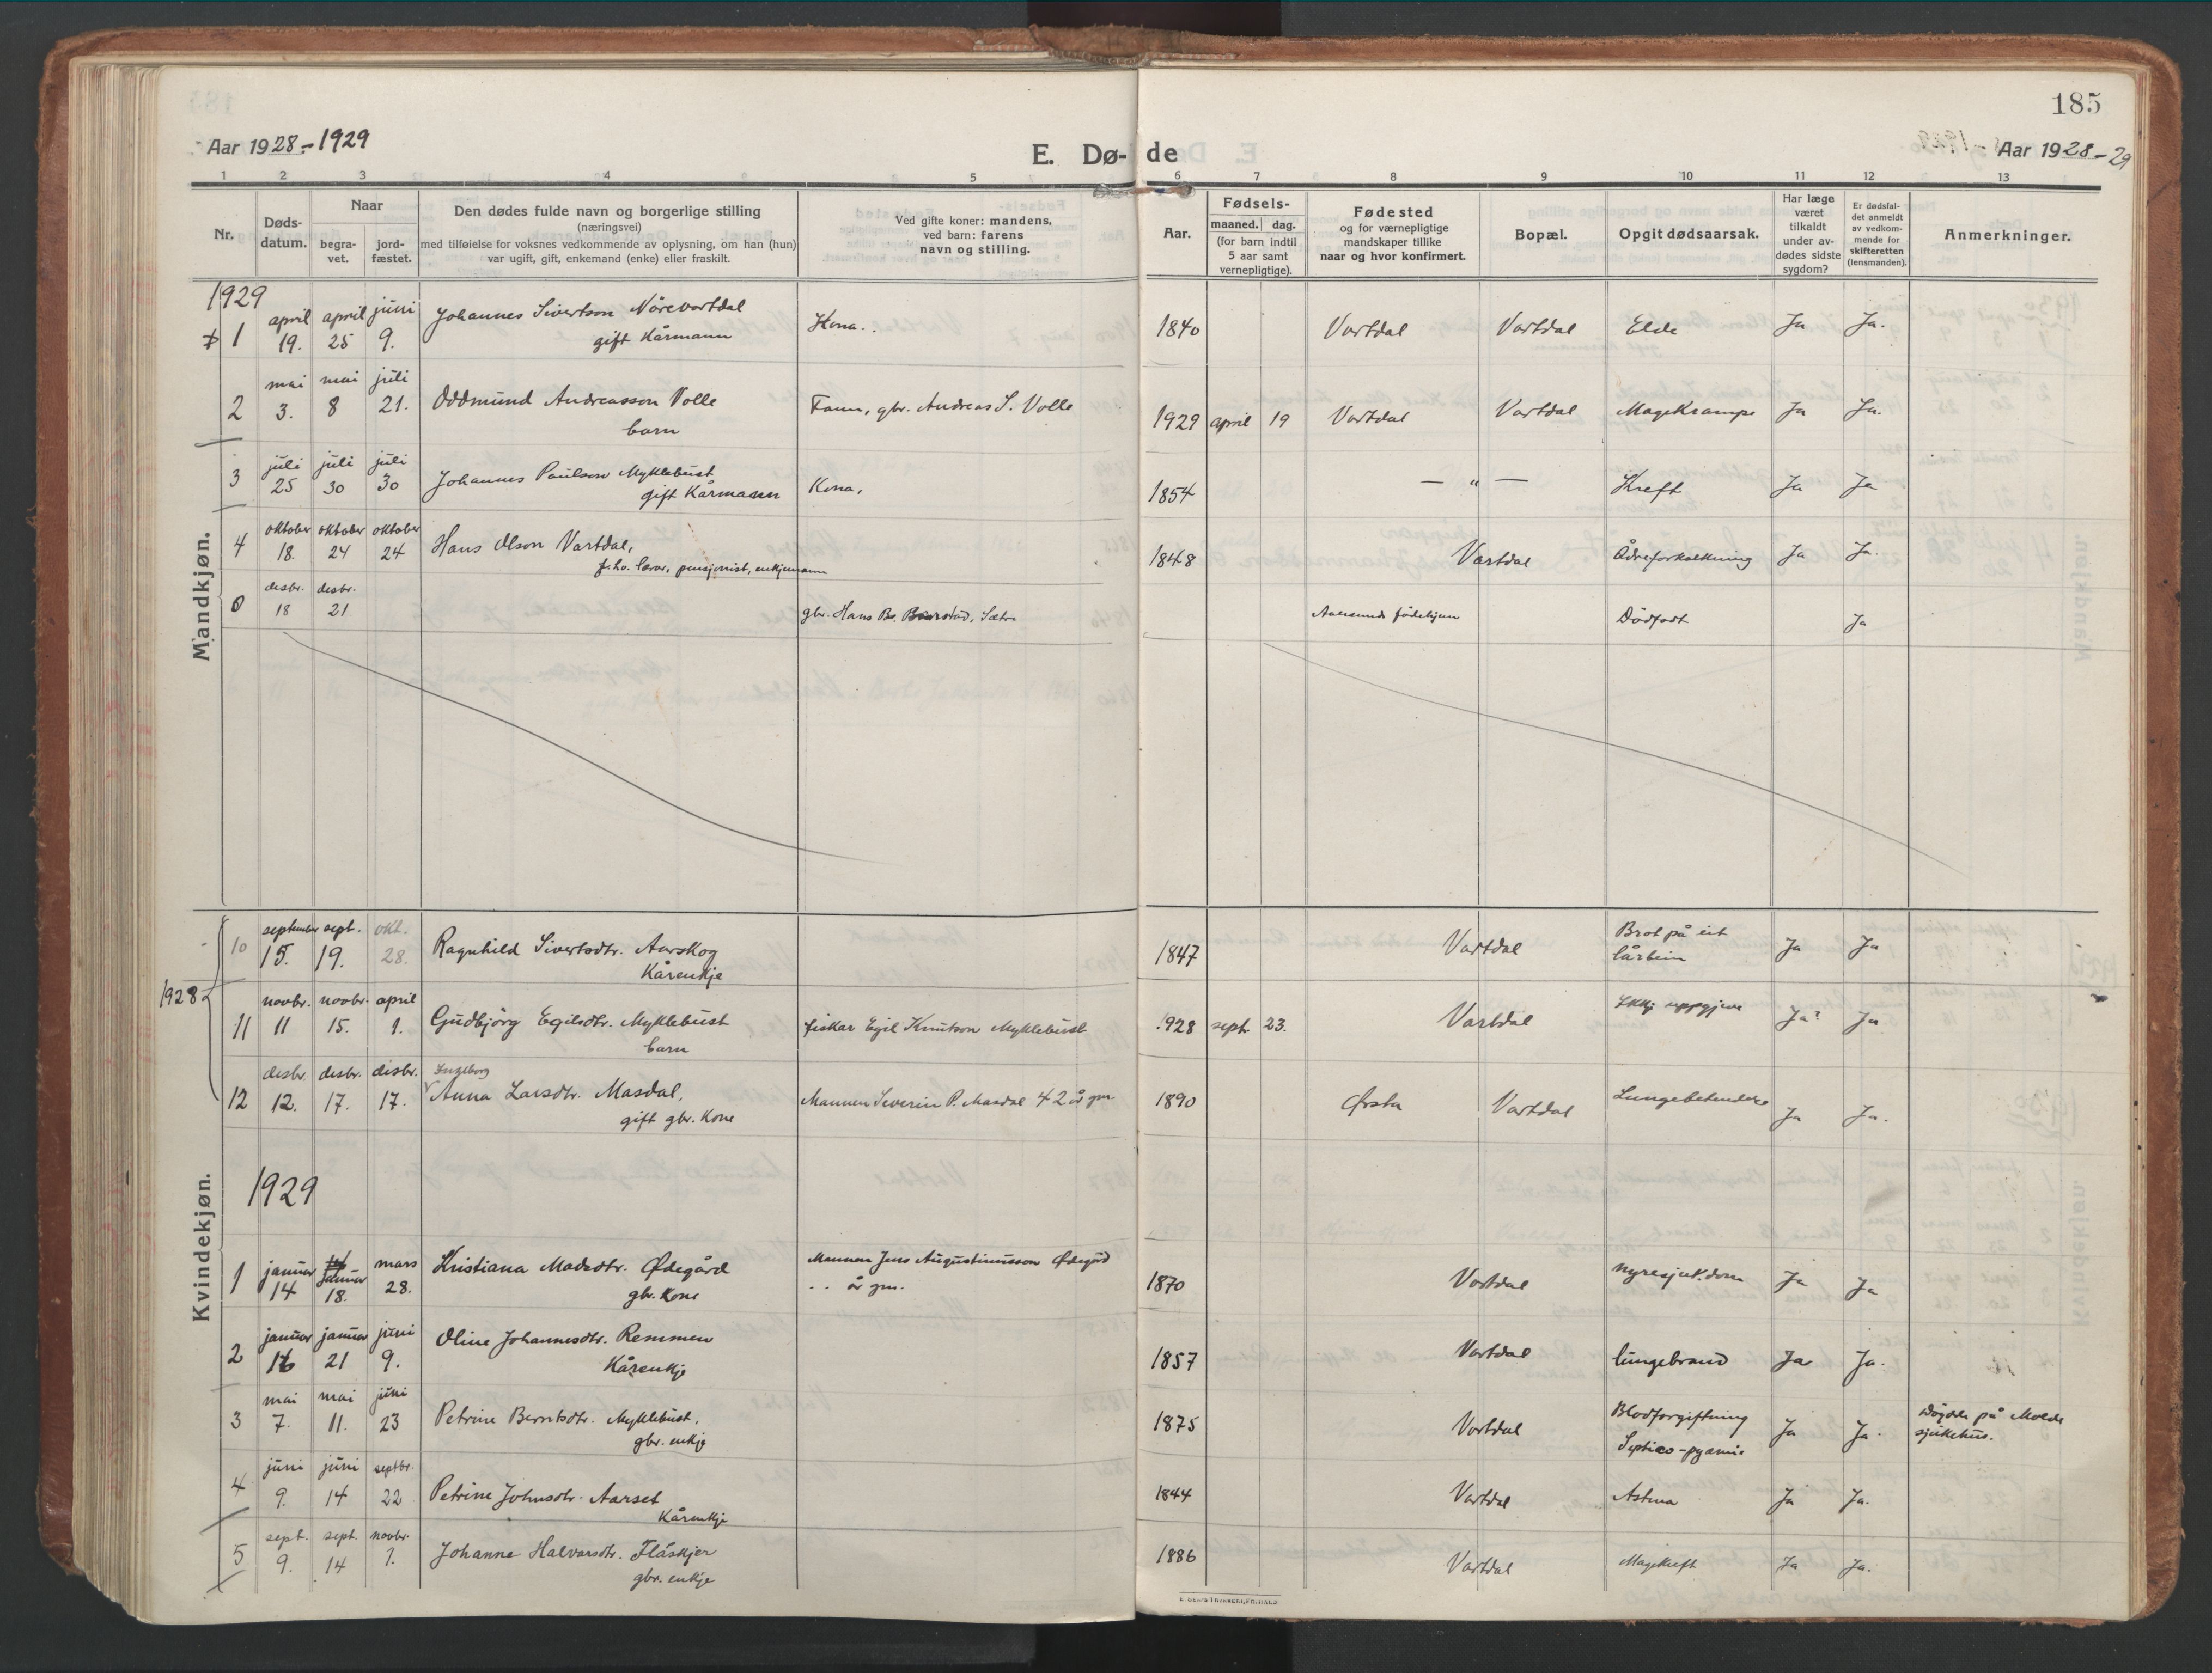 185
Aar 1928-1929
E. Dø- de
Aar 1928-29
1 2 3 4 5 6 7 8 9 10 11 12 13
Nr.
Døds-
datum.
Naar
begra-
vet.
jord-
fæstet.
Den dødes fulde navn og borgerlige stilling
(næringsvei)
med tilføielse for voksnes vedkommende av oplysning, om han (hun)
var ugift, gift, enkemand (enke) eller fraskilt.
Ved gifte koner: mandens,
ved barn: farens
navn og stilling.
Aar.
Fødsels-
maaned. dag.
(for barn indtil
5 aar samt
vernepligtige).
Fødested
og for værnepligtige
mandskaper tillike
naar og hvor konfirmert.
Bopæl.
Opgit dødsaarsak.
Har læge
været
tilkaldt
under av-
dødes sidste
sygdom?
Er dødsfal-
det anmeldt
av vedkom-
mende for
skifteretten
(lensmanden).
Anmerkninger.
Mandkjøn.
1929
1 april 19. april 25 juni 9. Johannes Sivertson Nørevartdal
gift Kårmann
Kona.. 1840 Vartdal Vartdal Elde Ja Ja.
2 mai 3. mai 8 juli 21. Oddmund Andreasson Volle
barn
gbr. Andreas S. Volle 1929 april 19 Vartdal Vartdal Magekrampe Ja Ja.
3 juli 25 juli 30 juli 30 Johannes Paulson Myklebust
gift Kårmann
Kona, 1854 — " — Kreft Ja Ja
4 oktober 18. oktober 24 oktober 24 Hans Olson Vartdal,
f.hv. lærar, pensjonist, enkjemann
1848 Vartdal Ådreforkalkning Ja Ja.
0 desbr. 18 desbr. 21 gbr. Hans B. Sætre Aalesunds fødehjem Dødfødt Ja
Kvindekjøn.
1928
10 september 15. sept. 19. okt. 28. Ragnhild Sivertsdtr. Aarskog
Kårenkje
1847 Vartdal Brot på eit
lårbein Ja Ja
11 novbr. 11 novbr. 15. april 1. Gudbjörg Egilsdtr. Myklebust
barn
fiskar Egil Knutson Myklebust 1928 sept 23. Vartdal Ikkj uppgjeve Ja? Ja
12 desbr. 12. desbr. 17. desbr. 17. Ingeborg
Anna Larsdtr. Masdal,
gift gbr. Kone
Mannen Severin P. Masdal 42 år gm. 1890 Ørsta Vartdal Lungebetendelse Ja Ja.
1929
1 januar 14 januar 18. mars 28. Kristiana Madsdtr. Ødegård
gbr. Kone
Mannen Jens Augustinusson Ødegård
.. år gm.
1870 Vartdal nyresjukdom Ja Ja
2 januar 16 januar 21 juni 9. Oline Johannesdtr. Remmen
Kårenkje
1857 Vartdal lungebrand Ja Ja.
3 mai 7. mai 11. juni 23 Petrine Berntsdtr. Myklebust,
gbr. enkje
1875 Vartdal Blodforgiftning
Septico-pyæmie Ja Ja. Döydde på Molde
sjukehus.
4 juni 9. juni 14 septbr. 22 Petrine Johnsdtr. Aarset
Kårenkje
1844 Vartdal Astma Ja Ja.
5 sept. 9. sept. 14 novbr. 1. Johanne Halvarsdtr. Flåskjer
gbr. enkje
1886 Vartdal Magekreft Ja Ja.